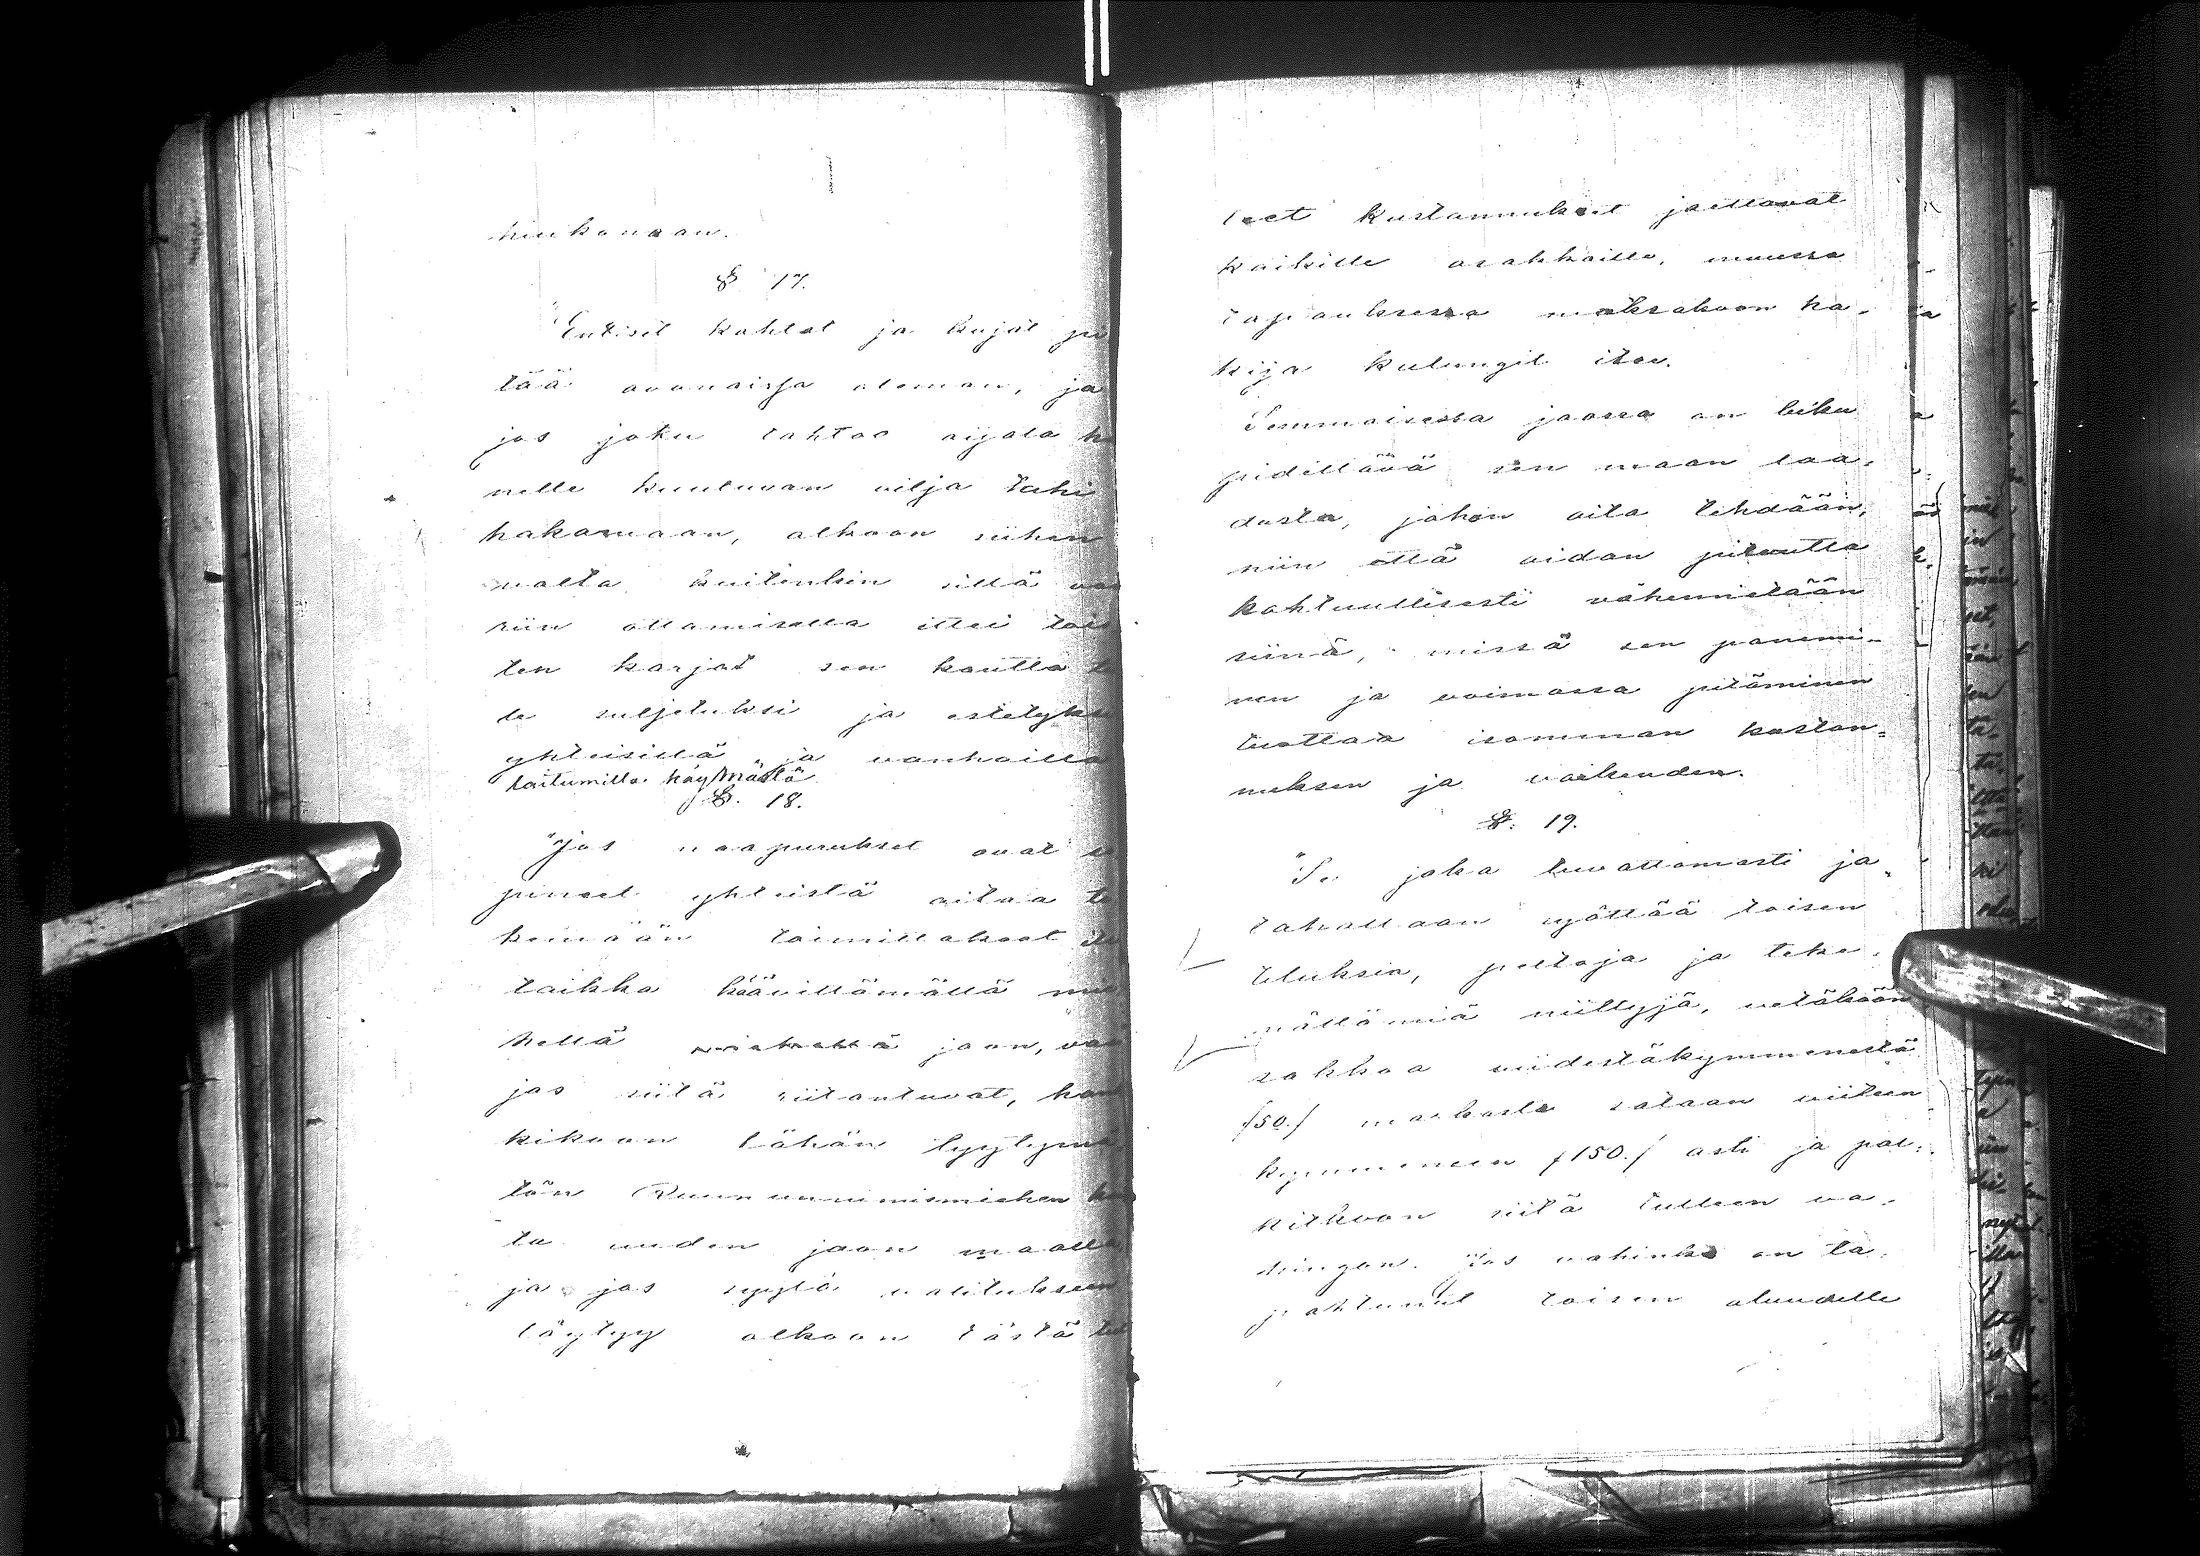 hinkonaan.
§ 17.
"Entiset kahlat ja kujat pi
tää avonaissa oleman, ja
jos joku tahtoo aijata hä
nelle kuuluvan vilja tahi
hakamaan, olkoon siihen
valta kuitenkin sillä va
riin ottamisella ettei tois
ten karjat sen kautta t
le suljetuksi ja estetyksi
yhteisillä ja vanhoilla
laitumilla käymästä
§. 18.
"Jos naapurukset ovat so
pineet yhteistä aitaa te
kemään toimittakoot its
taikka käävittämällä mie
hellä jaon, van
jos siitä riitantuvat, han
kikoon tähän tyytymä
tön Ruununnimismiehen ka
ta uuden jaon maalla
ja jos syytä valitukseen
löytyy olkoon tästä tul
leet kustannukset jaettavat
kaikille osakkaille, muussa
tapauksessa maksakoon ha-
kija kulungit itse.
Semmoisessa jaossa on luku
pidettävä sen maan laa-
dusta, johon aita tehdään,
niin että aidan pituutta
kohtuullisesti vähennetään
siinä, missä sen panemi-
nen ja voimassa pitäminen
tuottaa isomman kustan-
nuksen ja vaikeuden.
§. 19.
"Se joka luvattomasti ja
tahallaan syöttää toisen
eluksia, peltoja ja teke-
mättömiä niittyjä, vetäköön
sakkoa viidestäkymmenestä
/50./ markasta sataan viiteen
kymmeneen /150./ asti ja pal-
kitkoon siitä tulleen va-
hingon. Jos vahinko on ta-
pahtunut toisen alueelle